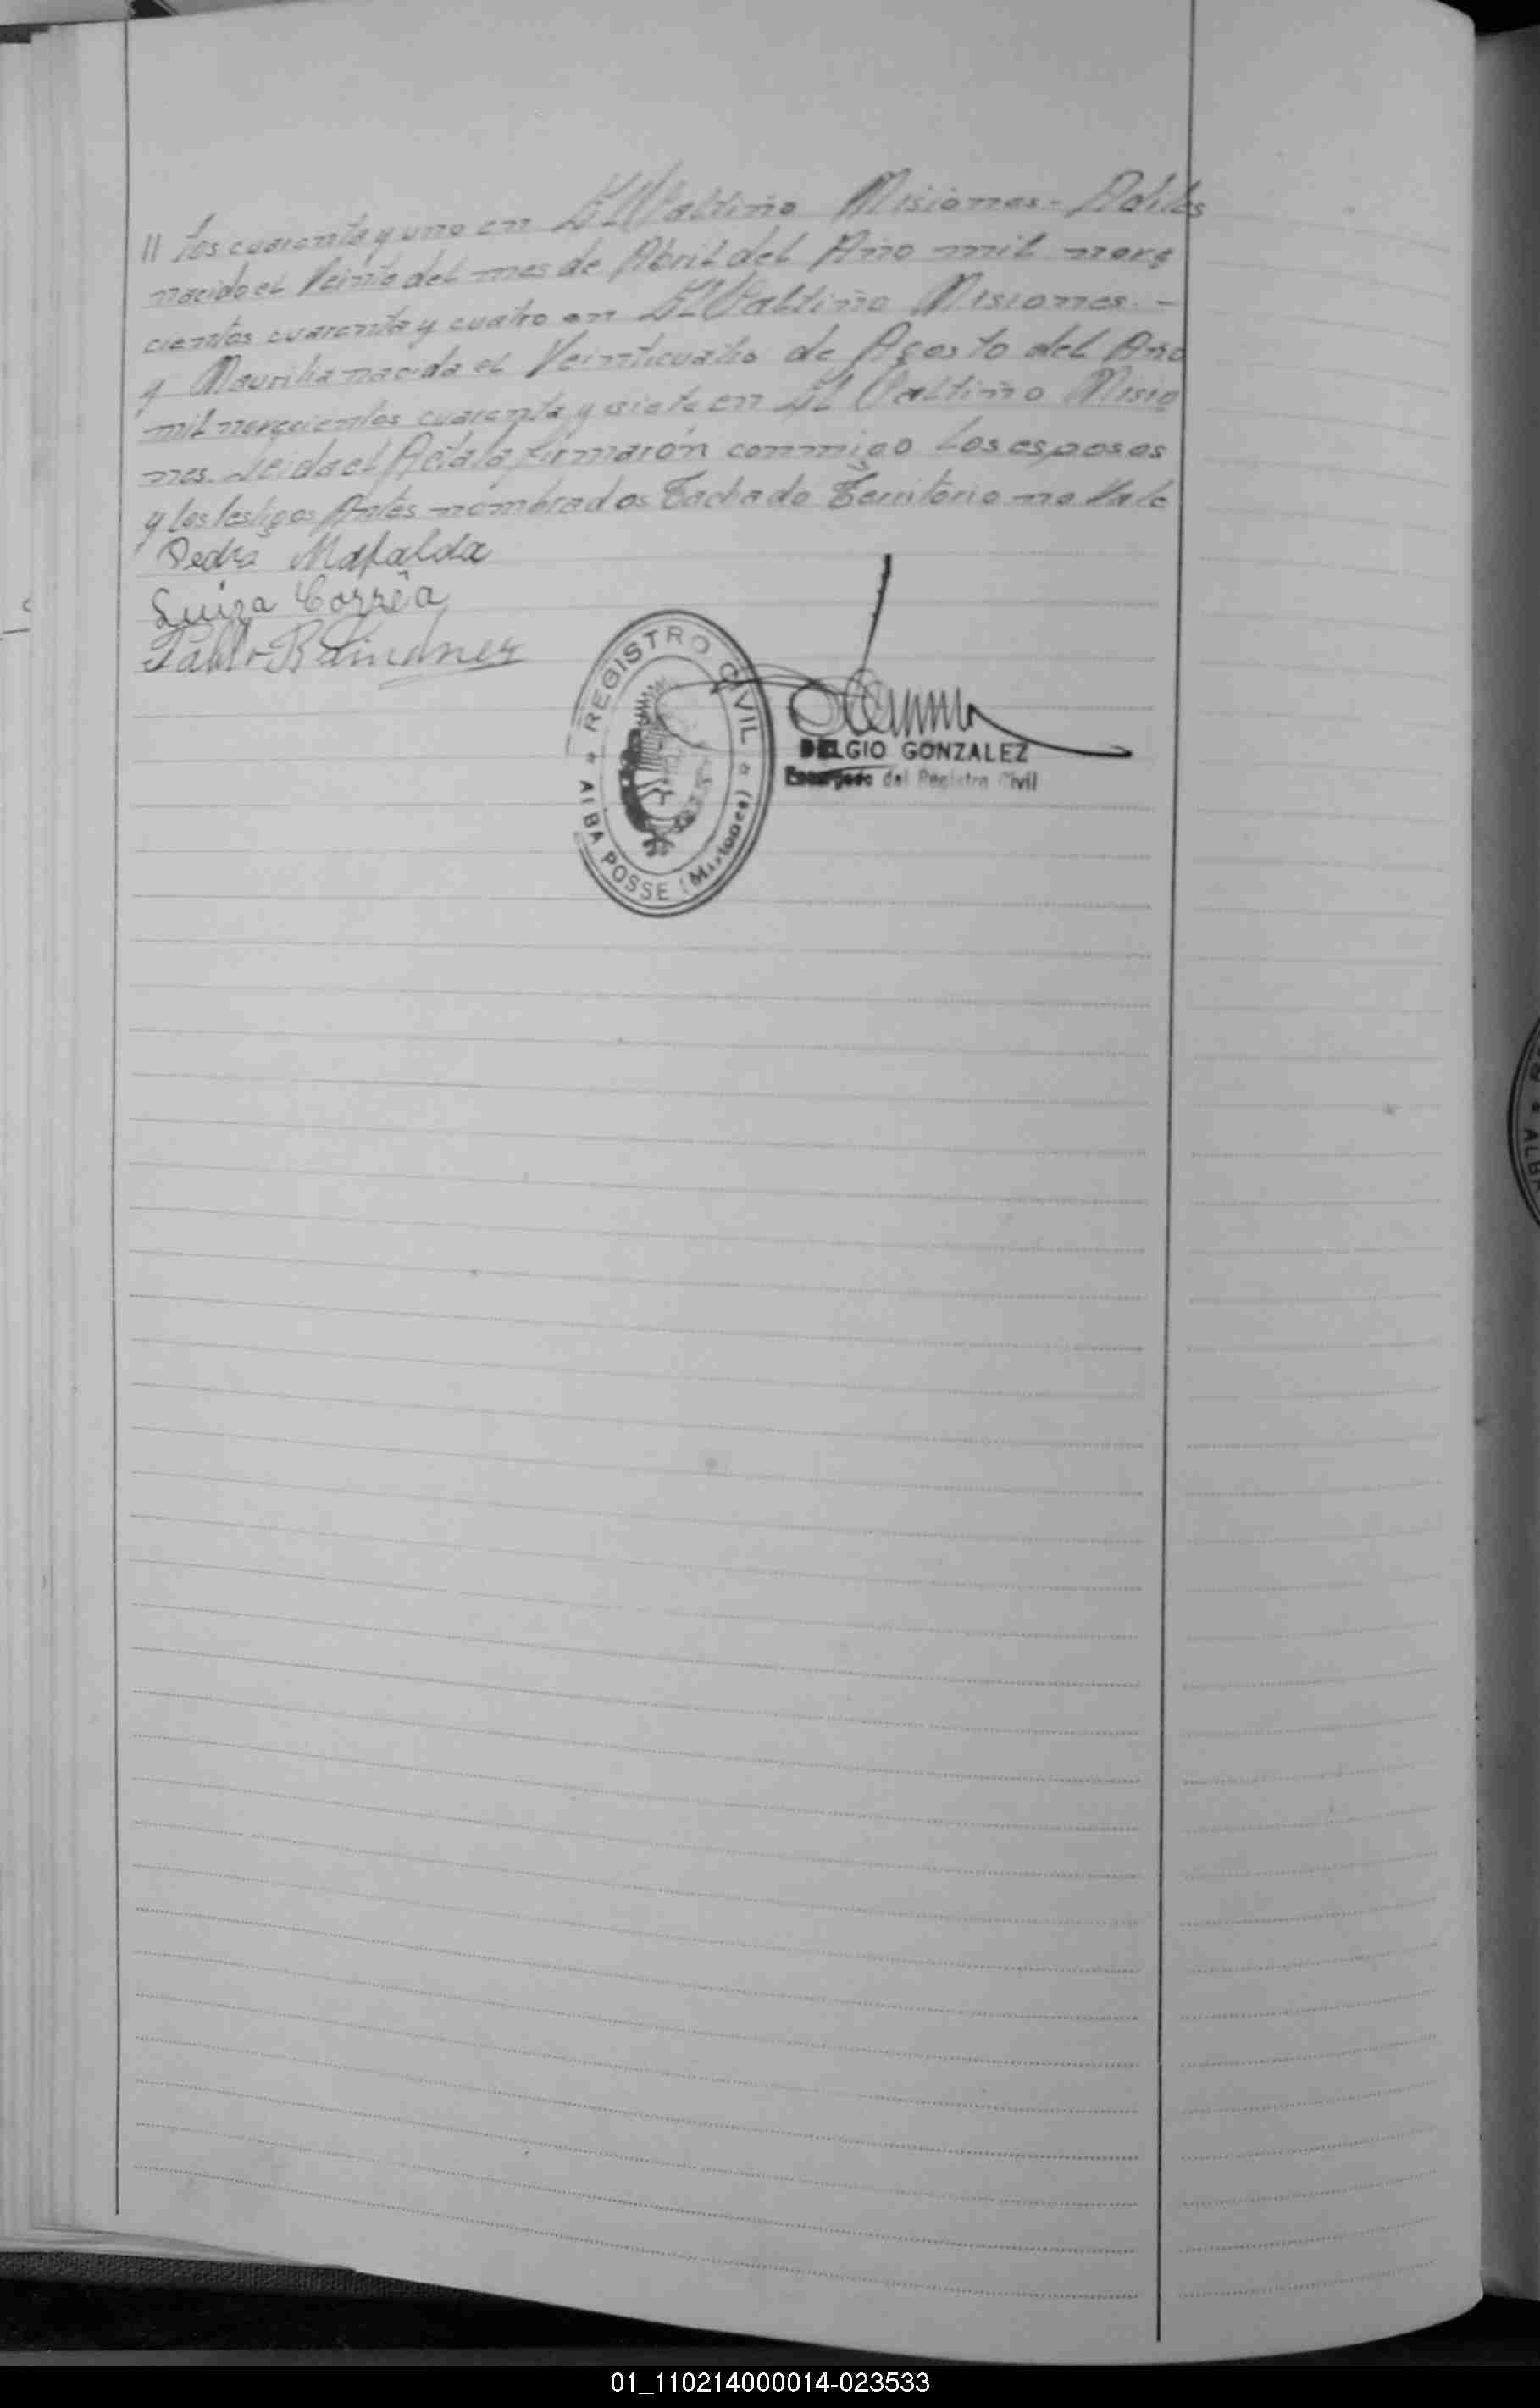 // tos cuarenta y uno en El Saltiño Misiones - Adiles
nacido el Veinte del mes de Abril del Año mil nove
cientos cuarenta y cuatro en El Saltiño Misiones. -
y Maurilia nacida el Veinticuatro de Agosto del Año
mil novecientos cuarenta y siete en El Saltiño Misio
nes. Leida el Acta la firmarón conmigo los esposos
y los testigos Antes nombrados Tachado Territorio no Vale
Pedro Mafalda
Luiza Corrêa
Pablo R
REGISTRO CIVIL
ALBA POSSE (Misiones)
DELGIO GONZALEZ
Encargado del Registro Civil
ALBA
01_110214000014-023533